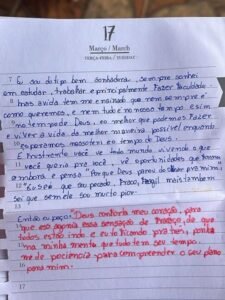 17
Março / March
TERÇA-FEIRA / TUESDAY
7 Eu sou do tipo bem sonhadora, sempre sonhei
em estudar, trabalhar e principalmente Fazer faculdade
8 mas a vida tem me ensinado que nem sempre é
como queremos, e nem tudo é nosso tempo e sim
9 no tempo de Deus, e o melhor que podemos Fazer
é viver a vida da melhor maneira possível enquanto
10 esperamos o tempo de Deus.
11 É frustrante você ver todo mundo vivendo o que
você queria pra você, vê oportunidades que foram
12 embora e pensa "Por que Deus parou de olhar pra mim
"Eu sei que sou pecado, Fraco, Frágil mais também
sei que sem ele sou muito pior.
13
Então eu peço: "Deus conforta meu coração, para
14 que eu suporte essa sensação de de que
todos estão indo e eu tô ficando pra trás, ponha
15 na minha mente que tudo tem seu tempo.
me dê paciência para compreender o seu plano
16 para mim.
17